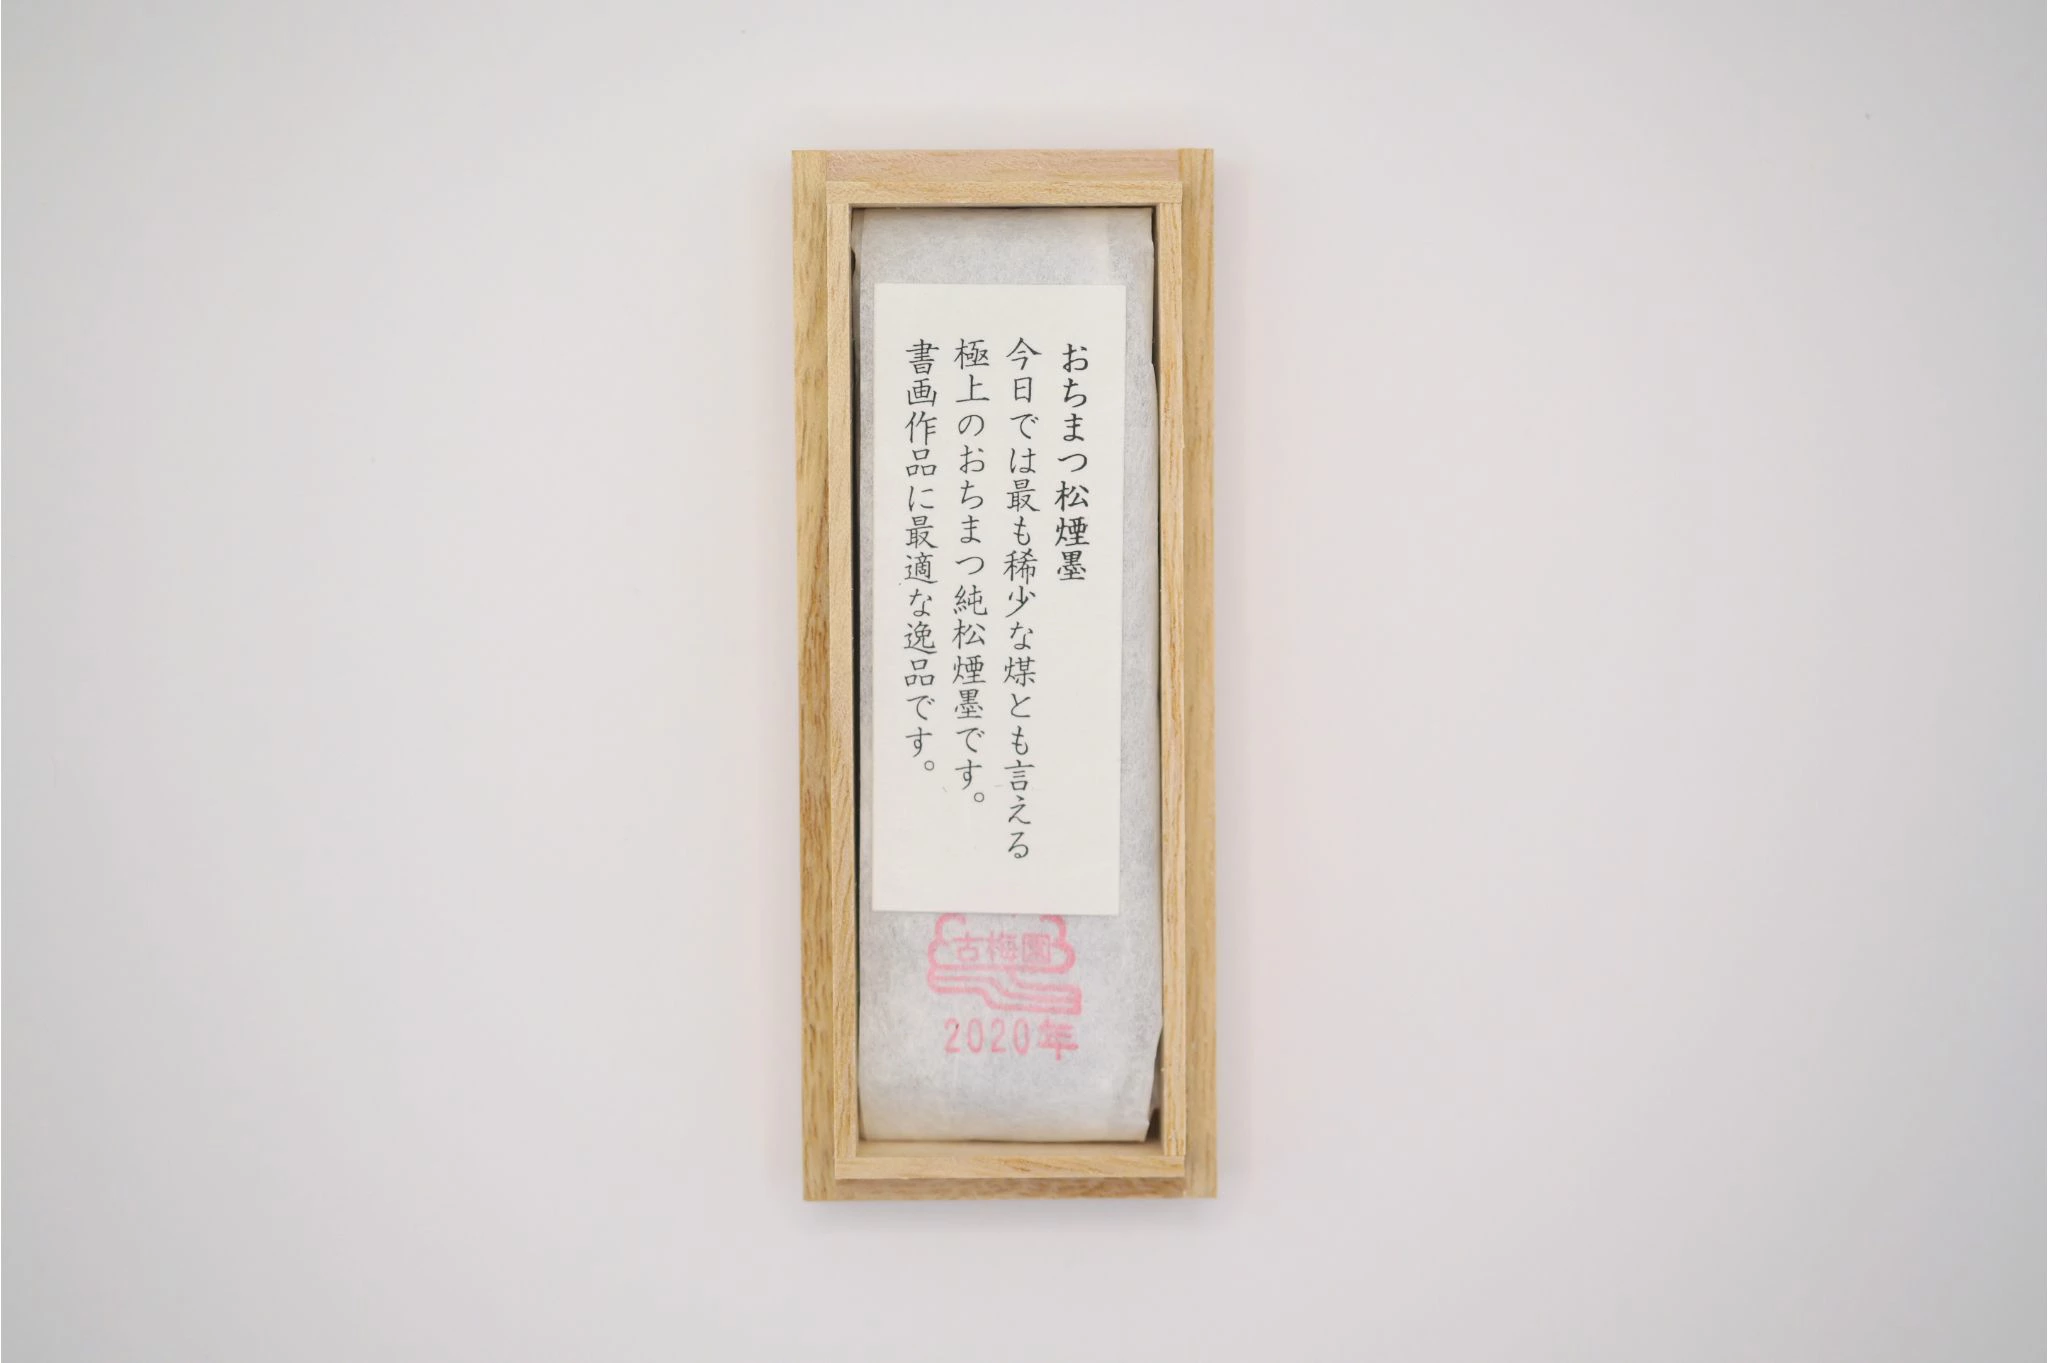 おちまつ松煙墨
今日では最も稀少な煤とも言える
極上のおちまつ純松煙墨です。
書画作品に最適な逸品です。
古梅園
2020年